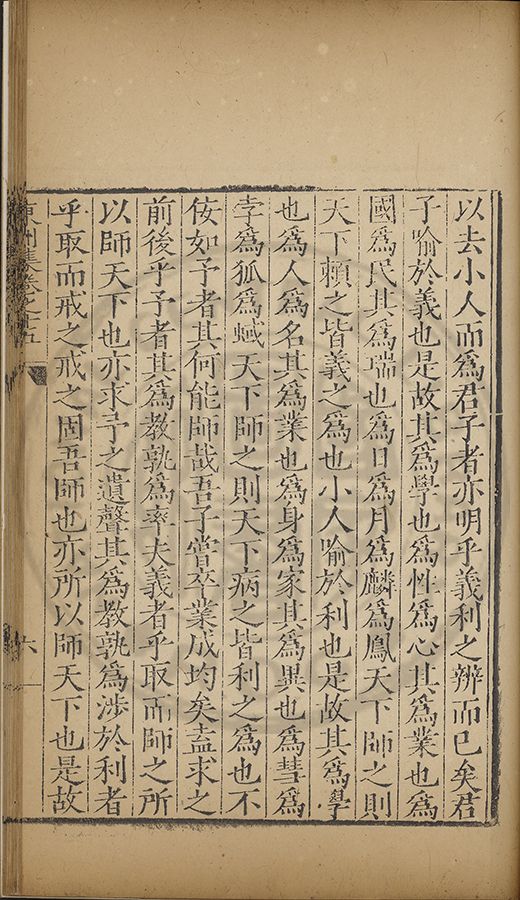 以去小人而爲君子者亦明乎義利之辨而已矣君
子喻於義也是故其爲學也爲性爲心其爲業也爲
國爲民其爲瑞也爲日爲月爲麟爲鳳天下師之則
天下賴之皆義之爲也小人喻於利也是故其爲學
也爲人爲名其爲業也爲身爲家其爲異也爲彗爲
孛爲狐爲蜮天下師之則天下病之皆利之爲也不
佞如予者其何能師哉吾子嘗卒業成均矣盍求之
前後乎予者其爲教孰爲率夫義者乎取而師之所
以師天下也亦求予之遺聲其爲教孰爲涉於利者
乎取而戒之戒之固吾師也亦所以師天下也是故
集卷之十五
六